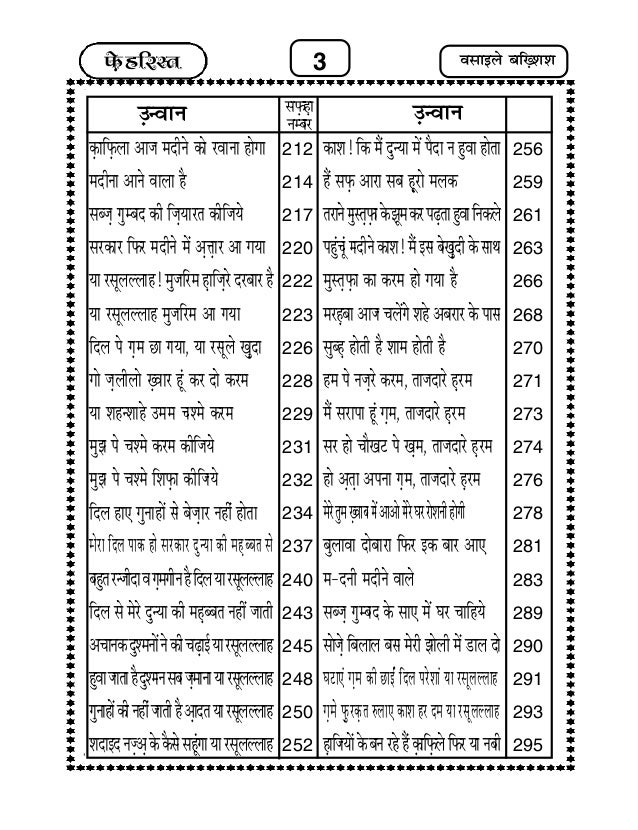 फ़ेहरिस्त
3
वसाइले बख़्शिश
उ़न्वान सफ़्ह़ा नम्बर उ़न्वान
क़ाफ़िला आज मदीने को रवाना होगा 212 काश ! कि मैं दुन्या में पैदा न हुवा होता 256
मदीना आने वाला है 214 हैं सफ़ आरा सब हूरो मलक 259
सब्ज़ गुम्बद की ज़ियारत कीजिये 217 तराने मुस्त़फ़ा के झूम कर पढ़ता हुवा निकले 261
सरकार फिर मदीने में अ़त़्त़ार आ गया 220 पहुंचूं मदीने काश ! मैं इस बेख़ुदी के साथ 263
या रसूलल्लाह ! मुजरिम ह़ाज़िरे दरबार है 222 मुस्त़फ़ा का करम हो गया है 266
या रसूलल्लाह मुजरिम आ गया 223 मरह़बा आज चलेंगे शहे अबरार के पास 268
दिल पे ग़म छा गया, या रसूले ख़ुदा 226 सुब्ह़ होती है शाम होती है 270
गो ज़लीलो ख़्वार हूं कर दो करम 228 हम पे नज़रे करम, ताजदारे ह़रम 271
या शहन्शाहे उमम चश्मे करम 229 मैं सरापा हूं ग़म, ताजदारे ह़रम 273
मुझ पे चश्मे करम कीजिये 231 सर हो चौखट पे ख़म, ताजदारे ह़रम 274
मुझ पे चश्मे शिफ़ा कीजिये 232 हो अ़त़ा अपना ग़म, ताजदारे ह़रम 276
दिल हाए गुनाहों से बेज़ार नहीं होता 234 मेरे तुम ख़्वाब में आओ मेरे घर रोशनी होगी 278
मेरा दिल पाक हो सरकार दुन्या की महब्बत से 237 बुलावा दोबारा फिर इक बार आए 281
बहुत रन्जीदा व ग़मगीन है दिल या रसूलल्लाह 240 म-दनी मदीने वाले 283
दिल से मेरे दुन्या की महब्बत नहीं जाती 243 सब्ज़ गुम्बद के साए में घर चाहिये 289
अचानक दुश्मनों ने की चढ़ाई या रसूलल्लाह 245 सोज़े बिलाल बस मेरी झोली में डाल दो 290
हुवा जाता है दुश्मन सब ज़माना या रसूलल्लाह 248 घटाएं ग़म की छाईं दिल परेशां या रसूलल्लाह 291
गुनाहों की नहीं जाती है आदत या रसूलल्लाह 250 ग़मे फुरक़त रुलाए काश हर दम या रसूलल्लाह 293
शदाइद नज़्अ़ के कैसे सहूंगा या रसूलल्लाह 252 ह़ाजियों के बन रहे हैं क़ाफ़िले फिर या नबी 295